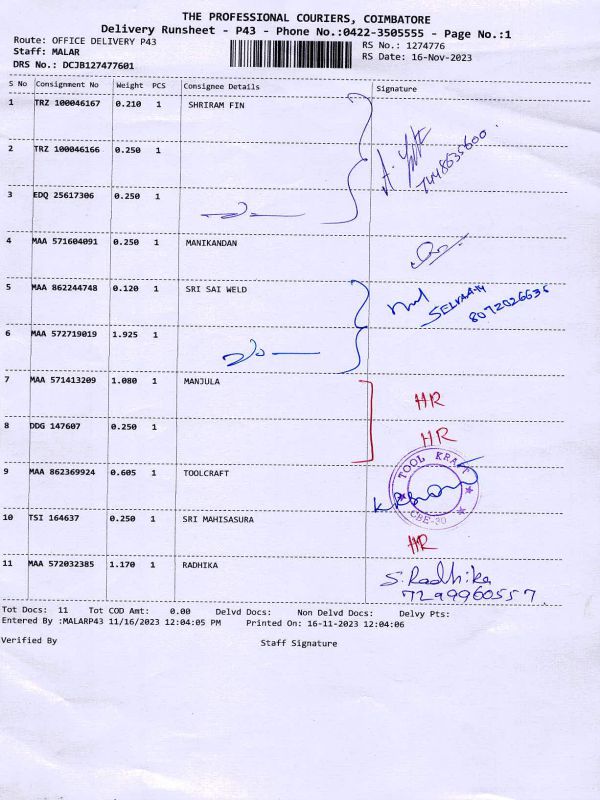 THE PROFESSIONAL COURIERS, COIMBATORE
Delivery Runsheet - P43 - Phone No.:0422-3505555 - Page No.:1
Route: OFFICE DELIVERY P43 RS No.: 1274776
Staff: MALAR RS Date: 16-Nov-2023
DRS No.: DCJB127477601
S No Consignment No Weight PCS Consignee Details Signature
1 TRZ 100046167 0.210 1 SHRIRAM FIN
2 TRZ 100046166 0.250 1
7448835600
3 EDQ 25617306 0.250 1
4 MAA 571604091 0.250 1 MANIKANDAN
5 MAA 862244748 0.120 1 SRI SAI WELD
8072026636
6 MAA 572719019 1.925 1
7 MAA 571413209 1.080 1 MANJULA HR
8 DDG 147607 0.250 1 HR
9 MAA 862369924 0.605 1 TOOLCRAFT TOOL KRAFT
CBE-30
10 TSI 164637 0.250 1 SRI MAHISASURA HR
11 MAA 572032385 1.170 1 RADHIKA S. Radhika
7299960557
Tot Docs: 11 Tot COD Amt: 0.00 Delvd Docs: Non Delvd Docs: Delvy Pts:
Entered By :MALARP43 11/16/2023 12:04:05 PM Printed On: 16-11-2023 12:04:06
Verified By Staff Signature